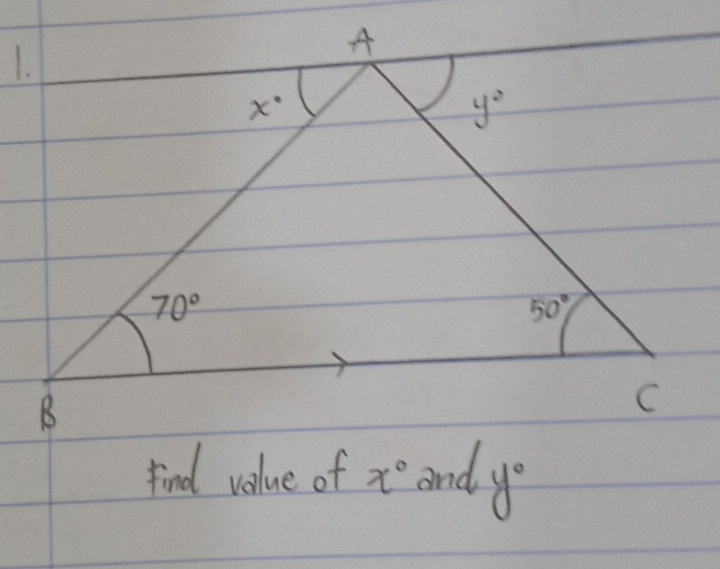 1.
A
x°
y°
70°
50°
B
C
Find value of x° and y°